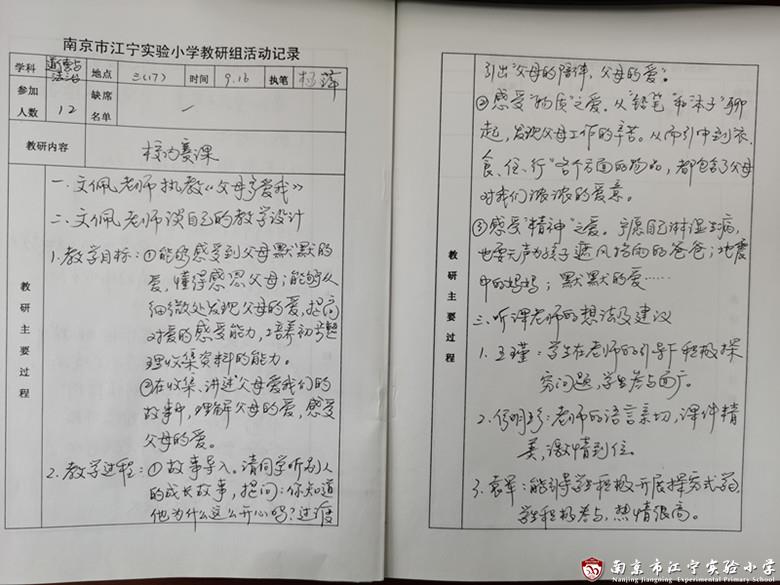 南京市江宁实验小学教研组活动记录
学科 道德与法治 地点 三(17) 时间 9.16 执笔 杨萍
参加人数 12 缺席名单 —
教研内容 校内赛课
教研主要过程
一、文佩老师执教《父母多爱我》
二、文佩老师谈自己的教学设计
1.教学目标:①能够感受到父母默默的
爱,懂得感恩父母;能够从
细微处发现父母的爱,提高
对爱的感受能力,培养初步整
理收集资料的能力。
②在收集、讲述父母爱我们的
故事中,理解父母的爱,感受
父母的爱。
2.教学过程:①故事导入。请同学听别人
的成长故事,提问:你知道
他为什么这么开心吗?过渡
引出“父母的陪伴,父母的爱”。
②感受“物质”之爱。从“铅笔”和“本子”聊
起,发现父母工作的辛苦。从而引申到衣、
食、住、行”各个方面的物品,都包含了父母
对我们浓浓的爱意。
③感受“精神”之爱。宁愿自己淋湿生病,
也要为孩子遮风挡雨的爸爸;地震
中的妈妈;默默的爱……
教研主要过程
三、听课老师的想法及建议
1.王瑾:学生在老师的引导下积极探
究问题,学生参与面广。
2.何明珍:老师的语言亲切,课件精
美,激情到位。
3.袁军:能引导学生积极开展探究式
学生积极参与,热情很高。
南京市江宁实验小学
Nanjing Jiangning Experimental Primary School